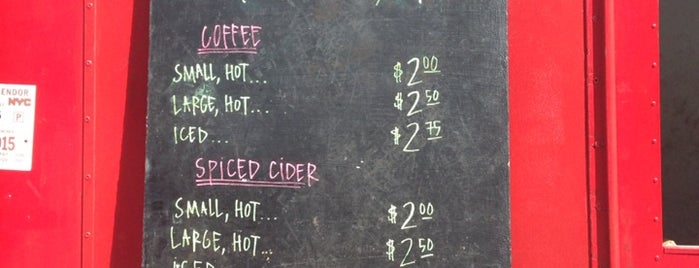 COFFEE
SMALL, HOT... $2.00
LARGE, HOT... $2.50
ICED... $2.75
SPICED CIDER
SMALL, HOT... $2.00
LARGE, HOT... $2.50
ICED
ENDOR
NYC
P
015